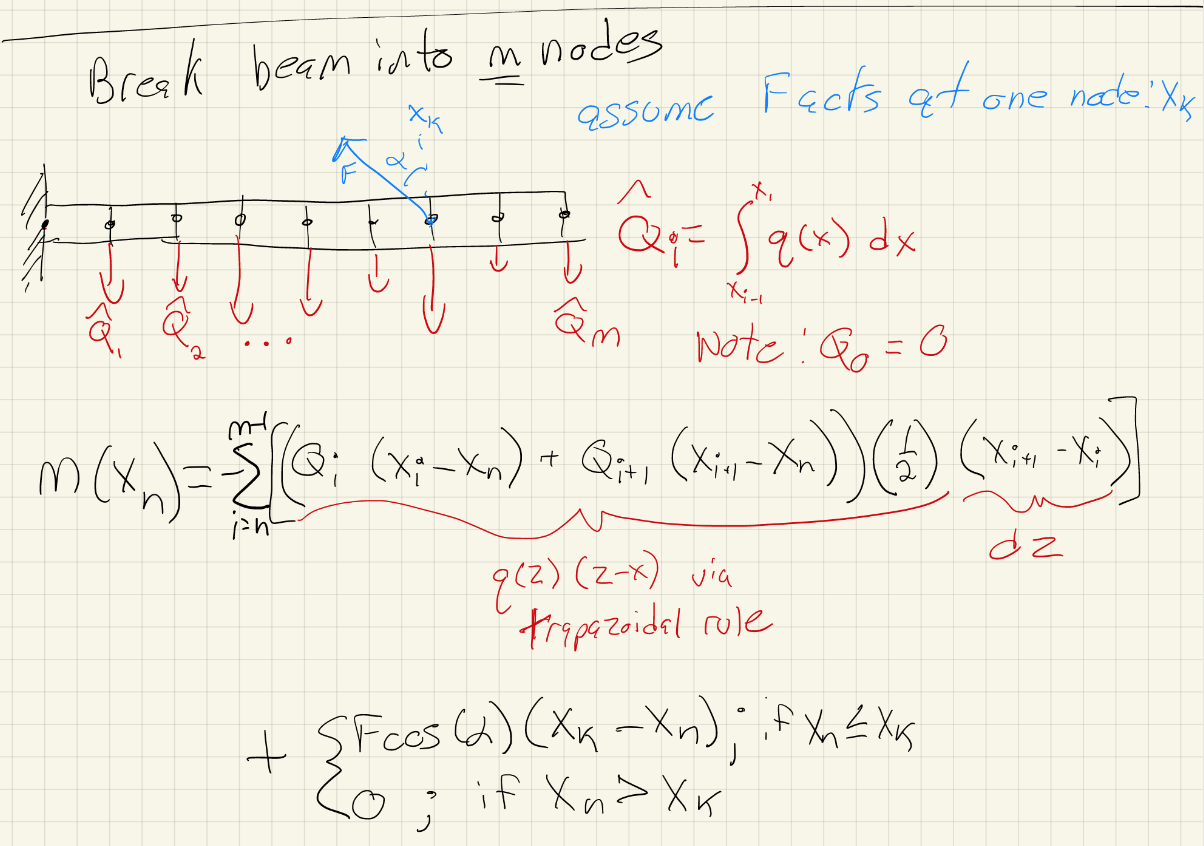 Break beam into m nodes
assume F acts at one node: xₖ
xₖ
α
F
Q̂₁ Q̂₂ ... Q̂ₘ
Q̂ᵢ = ∫_{xᵢ₋₁}^{xᵢ} q(x) dx
Note: Q₀ = 0
m(xₙ) = -∑_{i=n}^{m-1} [(Qᵢ (xᵢ-xₙ) + Qᵢ₊₁ (xᵢ₊₁-xₙ)) (1/2) (xᵢ₊₁-xᵢ)]
q(z) (z-x) via
trapazoidal rule
dz
+ { Fcos(α)(xₖ-xₙ); if xₙ ≤ xₖ
0; if xₙ > xₖ